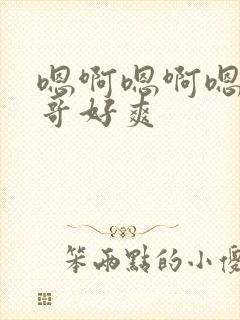 嗯啊嗯啊嗯
哥好爽
笨兩點的小優